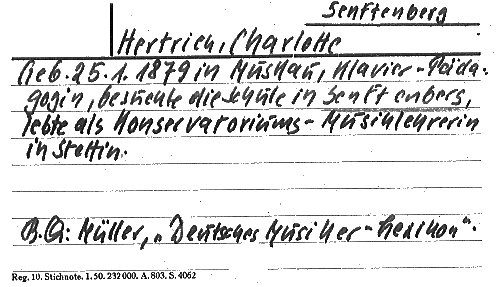 Senftenberg
Hertrich, Charlotte
Geb. 25. 1. 1879 in Muskau, Klavier-Päda-
gogin, besuchte die Schule in Senftenberg,
lebte als Konservatoriums-Musiklehrerin
in Stettin.
B.Q: Müller, „Deutsches Musiker-Lexikon".
Reg. 10. Stichnote. 1. 50. 232 000. A. 803. S. 4062